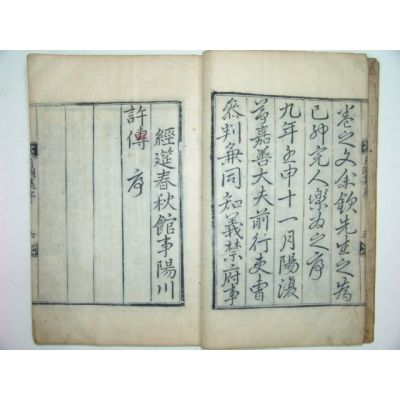 卷之文余欽先生之爲
己卯完人樂爲之序
九年壬申十一月陽復
節嘉善大夫前行吏曹
參判兼同知義禁府事
經筵春秋館事陽川
許傳 序